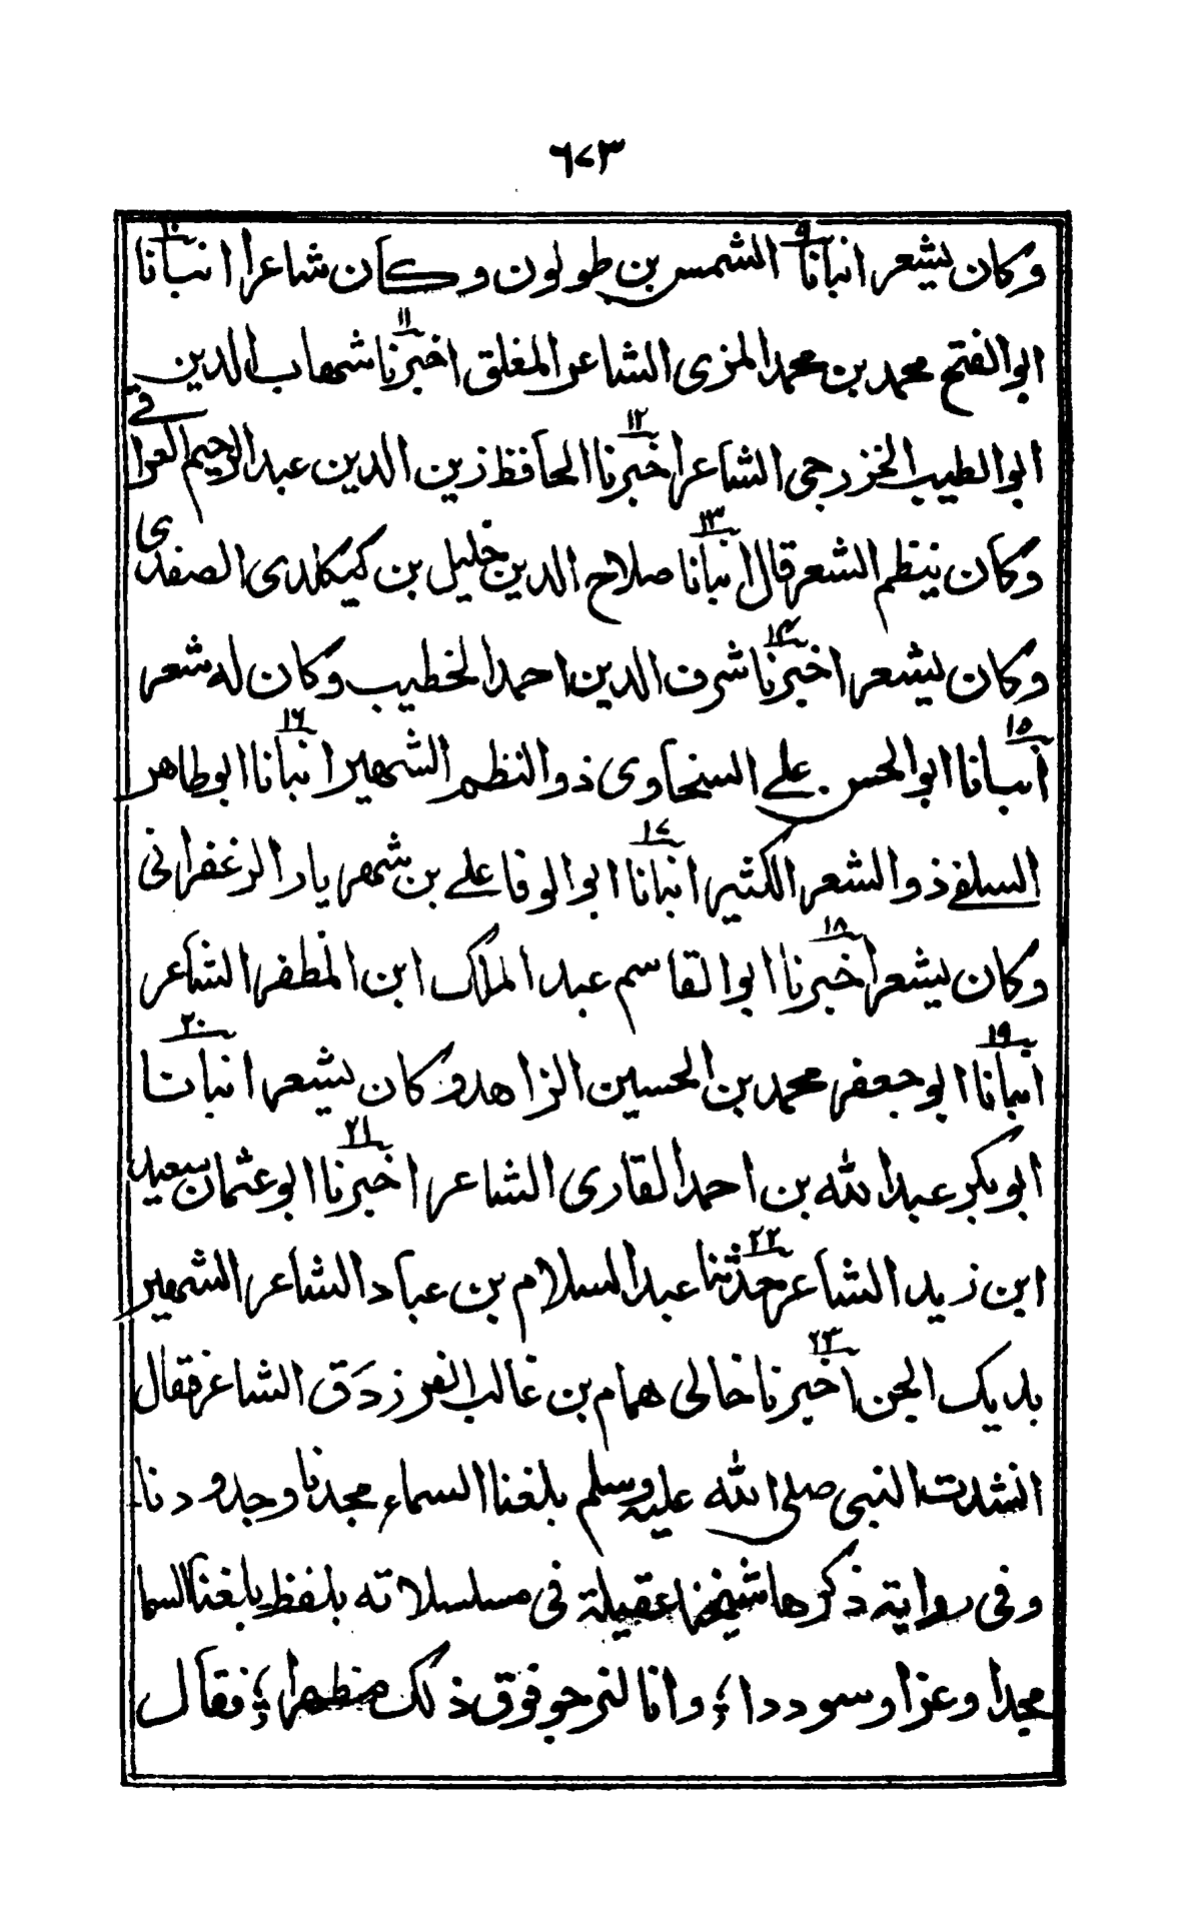 ٦٧٣
وكان يشعر انبانا ٩ الشمس بن طولون وكان شاعرا انبانا ١٠
ابوالفتح محمد بن محمد المزى الشاعر المغلق اخبرنا ١١ شهاب الدين
ابوالطيب الخزرجى الشاعر اخبرنا ١٢ الحافظ زين الدين عبدالرحيم العراقى
وكان ينظم الشعر قال انبانا ١٣ صلاح الدين خليل بن كيكلدى الصفدى
وكان يشعر اخبرنا ١٤ شرف الدين احمد الخطيب وكان له شعر
انبانا ١٥ ابوالحسن على السنحاوى ذوالنظم الشهير انبانا ١٦ ابوطاهر
السلفى ذوالشعر الكثير انبانا ١٧ ابوالوفا على بن شهريار الزغفرانى
وكان يشعر اخبرنا ١٨ ابوالقاسم عبدالملك ابن المظفر الشاعر
انبانا ١٩ ابوجعفر محمد بن الحسين الزاهد وكان يشعر انبانا ٢٠
ابوبكر عبدالله بن احمد القارى الشاعر اخبرنا ٢١ ابوعثمان سعيد
ابن زيد الشاعر حدثنا ٢٢ عبدالسلام بن عباد الشاعر الشهير
بديك الجن اخبرنا ٢٣ خالى همام بن غالب الفرزدق الشاعر فقال
انشدت النبى صلى الله عليه وسلم بلغنا السماء مجدنا وجدودنا
وفى رواية ذكرها شيخنا عقيلة فى مسلسلاته بلفظ بلغنا السما
مجدا وعزا وسوددا ؛ وانا لنرجو فوق ذلك مظهرا ؛ فقال